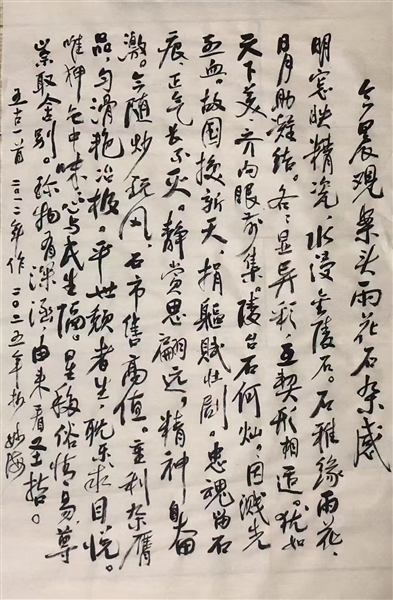 今晨观案头雨花石杂感
明窗映精瓷,水浸金陵石。石雅缘雨花、
日月助凝结。各各显异彩,互契形相适。犹如
天下美、齐向眼前集。陵台石何灿。因溅先
血。故国换新天,捐躯赋壮剧。忠魂留石
痕、正气长不灭。静赏思翩远,精神自奋
激。今随炒玩风、石市售高值。重利杂赝
品,匀滑艳冶极。平世颓者生,耽乐求目悦。
唯狎石中味,焉与民生隔。星移俗情易、尊
崇取舍别。称物有深涵,由来看圣哲。
五古一首 二〇一二年作 二〇二五年抄 妙海